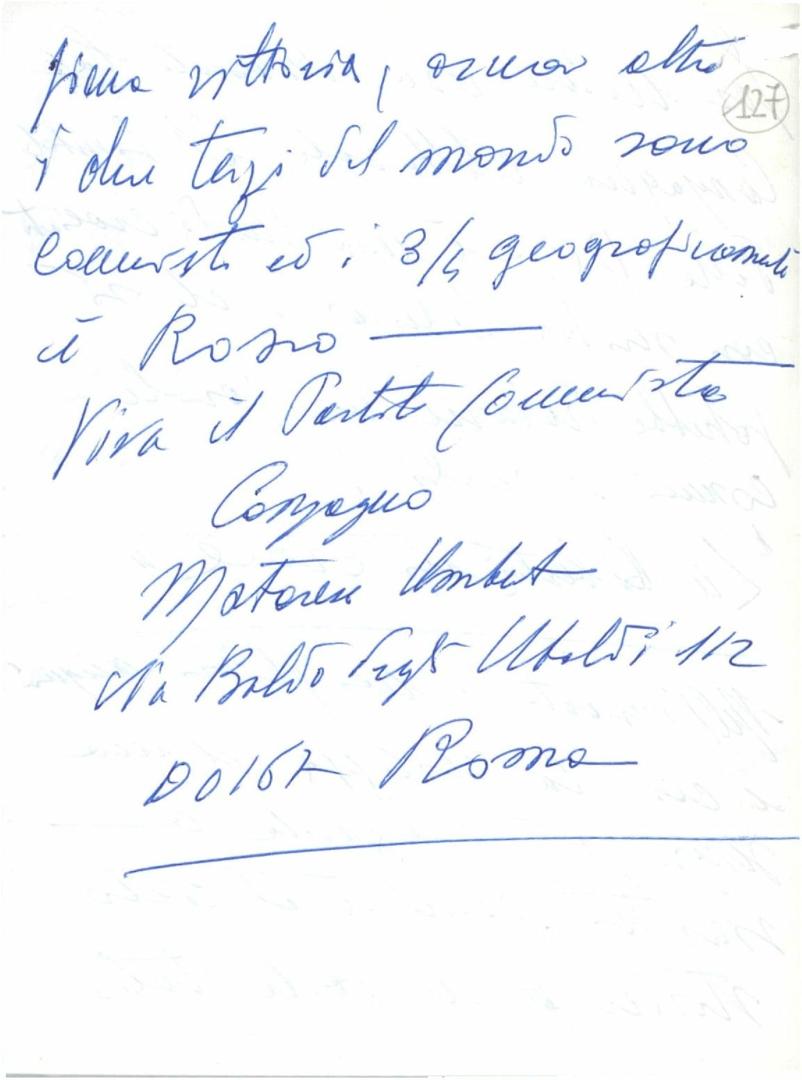 piena vittoria, ormai oltre
127
i due terzi del mondo sono
comunisti ed i 3/4 geograficamente
è Rosso
Viva il Partito Comunista
Compagno
Matarese Umberto
Via Baldo degli Ubaldi 112
00167 Roma